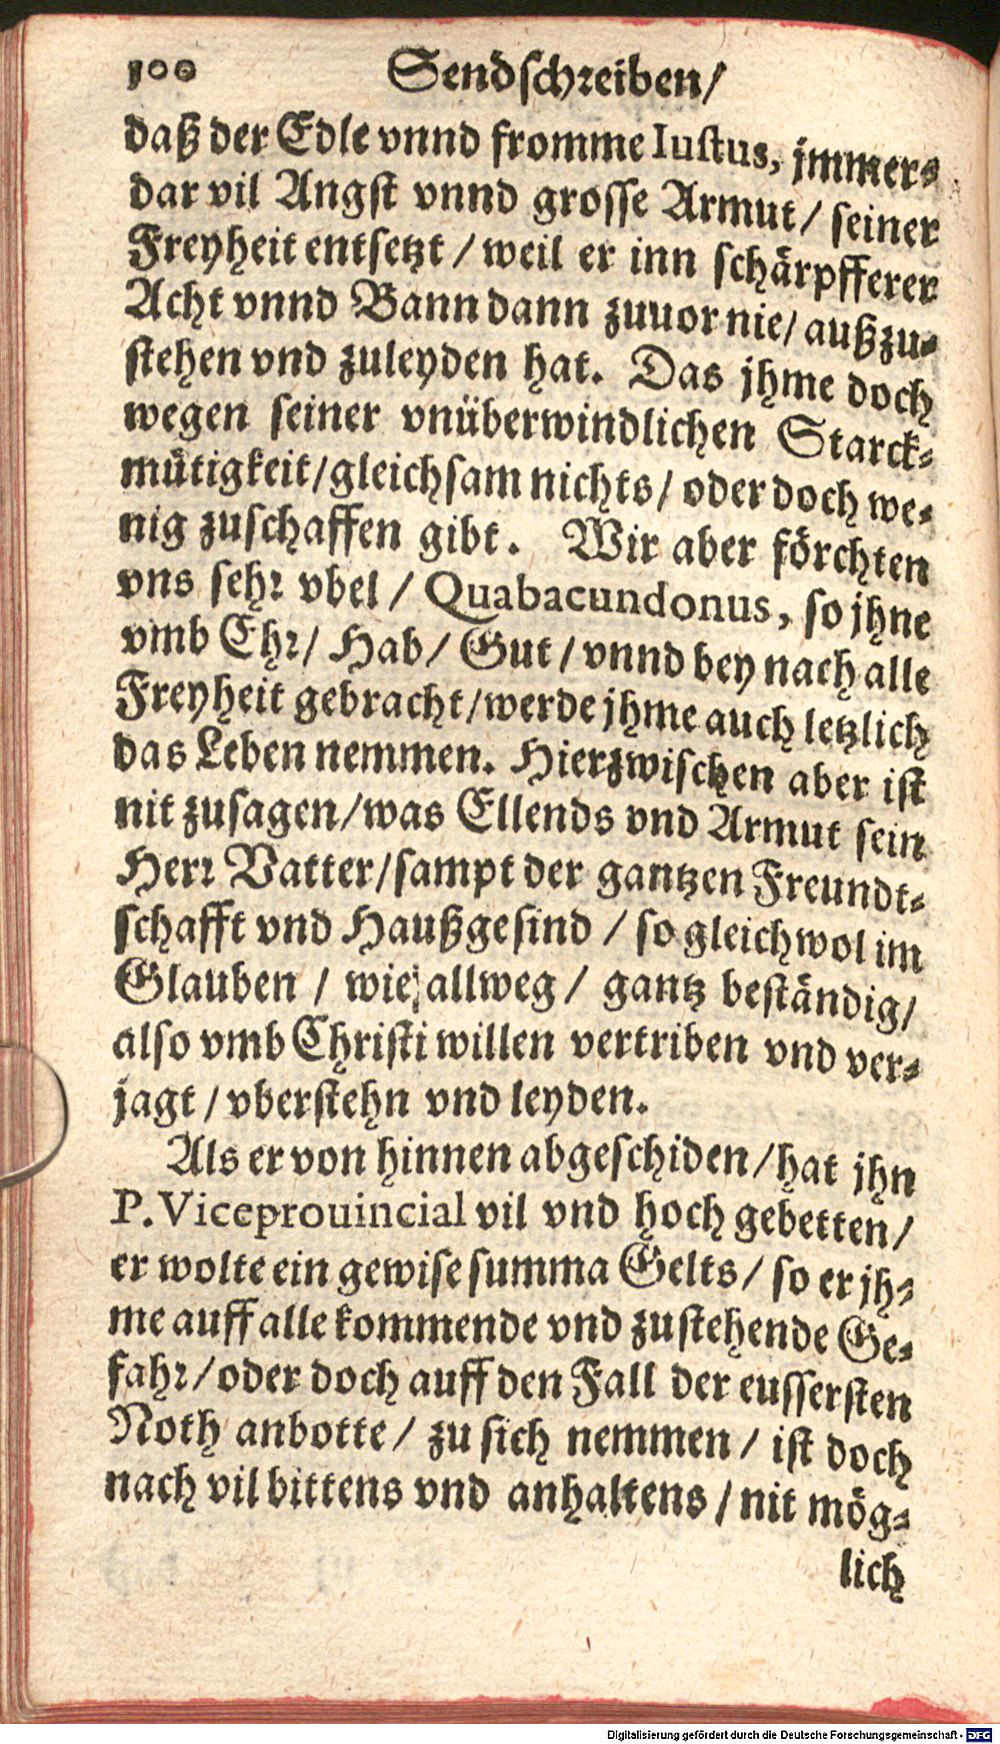 100 Sendschreiben/
daß der Edle vnnd fromme Iustus, jmmer-
dar vil Angst vnnd grosse Armut / seiner
Freyheit entsetzt / weil er inn schärpfferer
Acht vnnd Bann dann zuuor nie / außzu-
stehen vnd zuleyden hat. Das jhme doch
wegen seiner vnüberwindlichen Starck-
mütigkeit / gleichsam nichts / oder doch we-
nig zuschaffen gibt. Wir aber förchten
vns sehr vbel / Quabacundonus, so jhne
vmb Ehr / Hab / Gut / vnnd bey nach alle
Freyheit gebracht / werde jhme auch letzlich
das Leben nemmen. Hierzwischen aber ist
nit zusagen / was Ellends vnd Armut sein
Herr Vatter / sampt der gantzen Freundt-
schafft vnd Haußgesind / so gleichwol im
Glauben / wie allweg / gantz beständig /
also vmb Christi willen vertriben vnd ver-
jagt / vberstehn vnd leyden.
Als er von hinnen abgeschiden / hat jhn
P. Viceprouincial vil vnd hoch gebetten /
er wolte ein gewise summa Gelts / so er jh-
me auff alle kommende vnd zustehende Ge-
fahr / oder doch auff den Fall der eussersten
Noth anbotte / zu sich nemmen / ist doch
nach vil bittens vnd anhaltens / nit mög-
lich
Digitalisierung gefördert durch die Deutsche Forschungsgemeinschaft - DFG